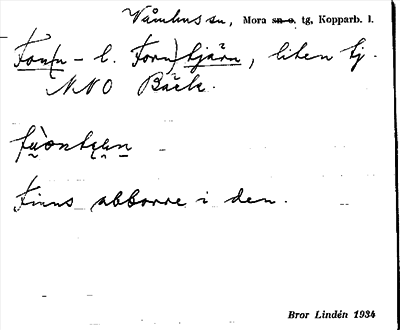 Våmhus sn, Mora sn o. tg, Kopparb. l.
Forn(n - l. Forn)tjärn, liten tj.
NNO Bäck.
Finns abborre i den.
Bror Lindén 1934